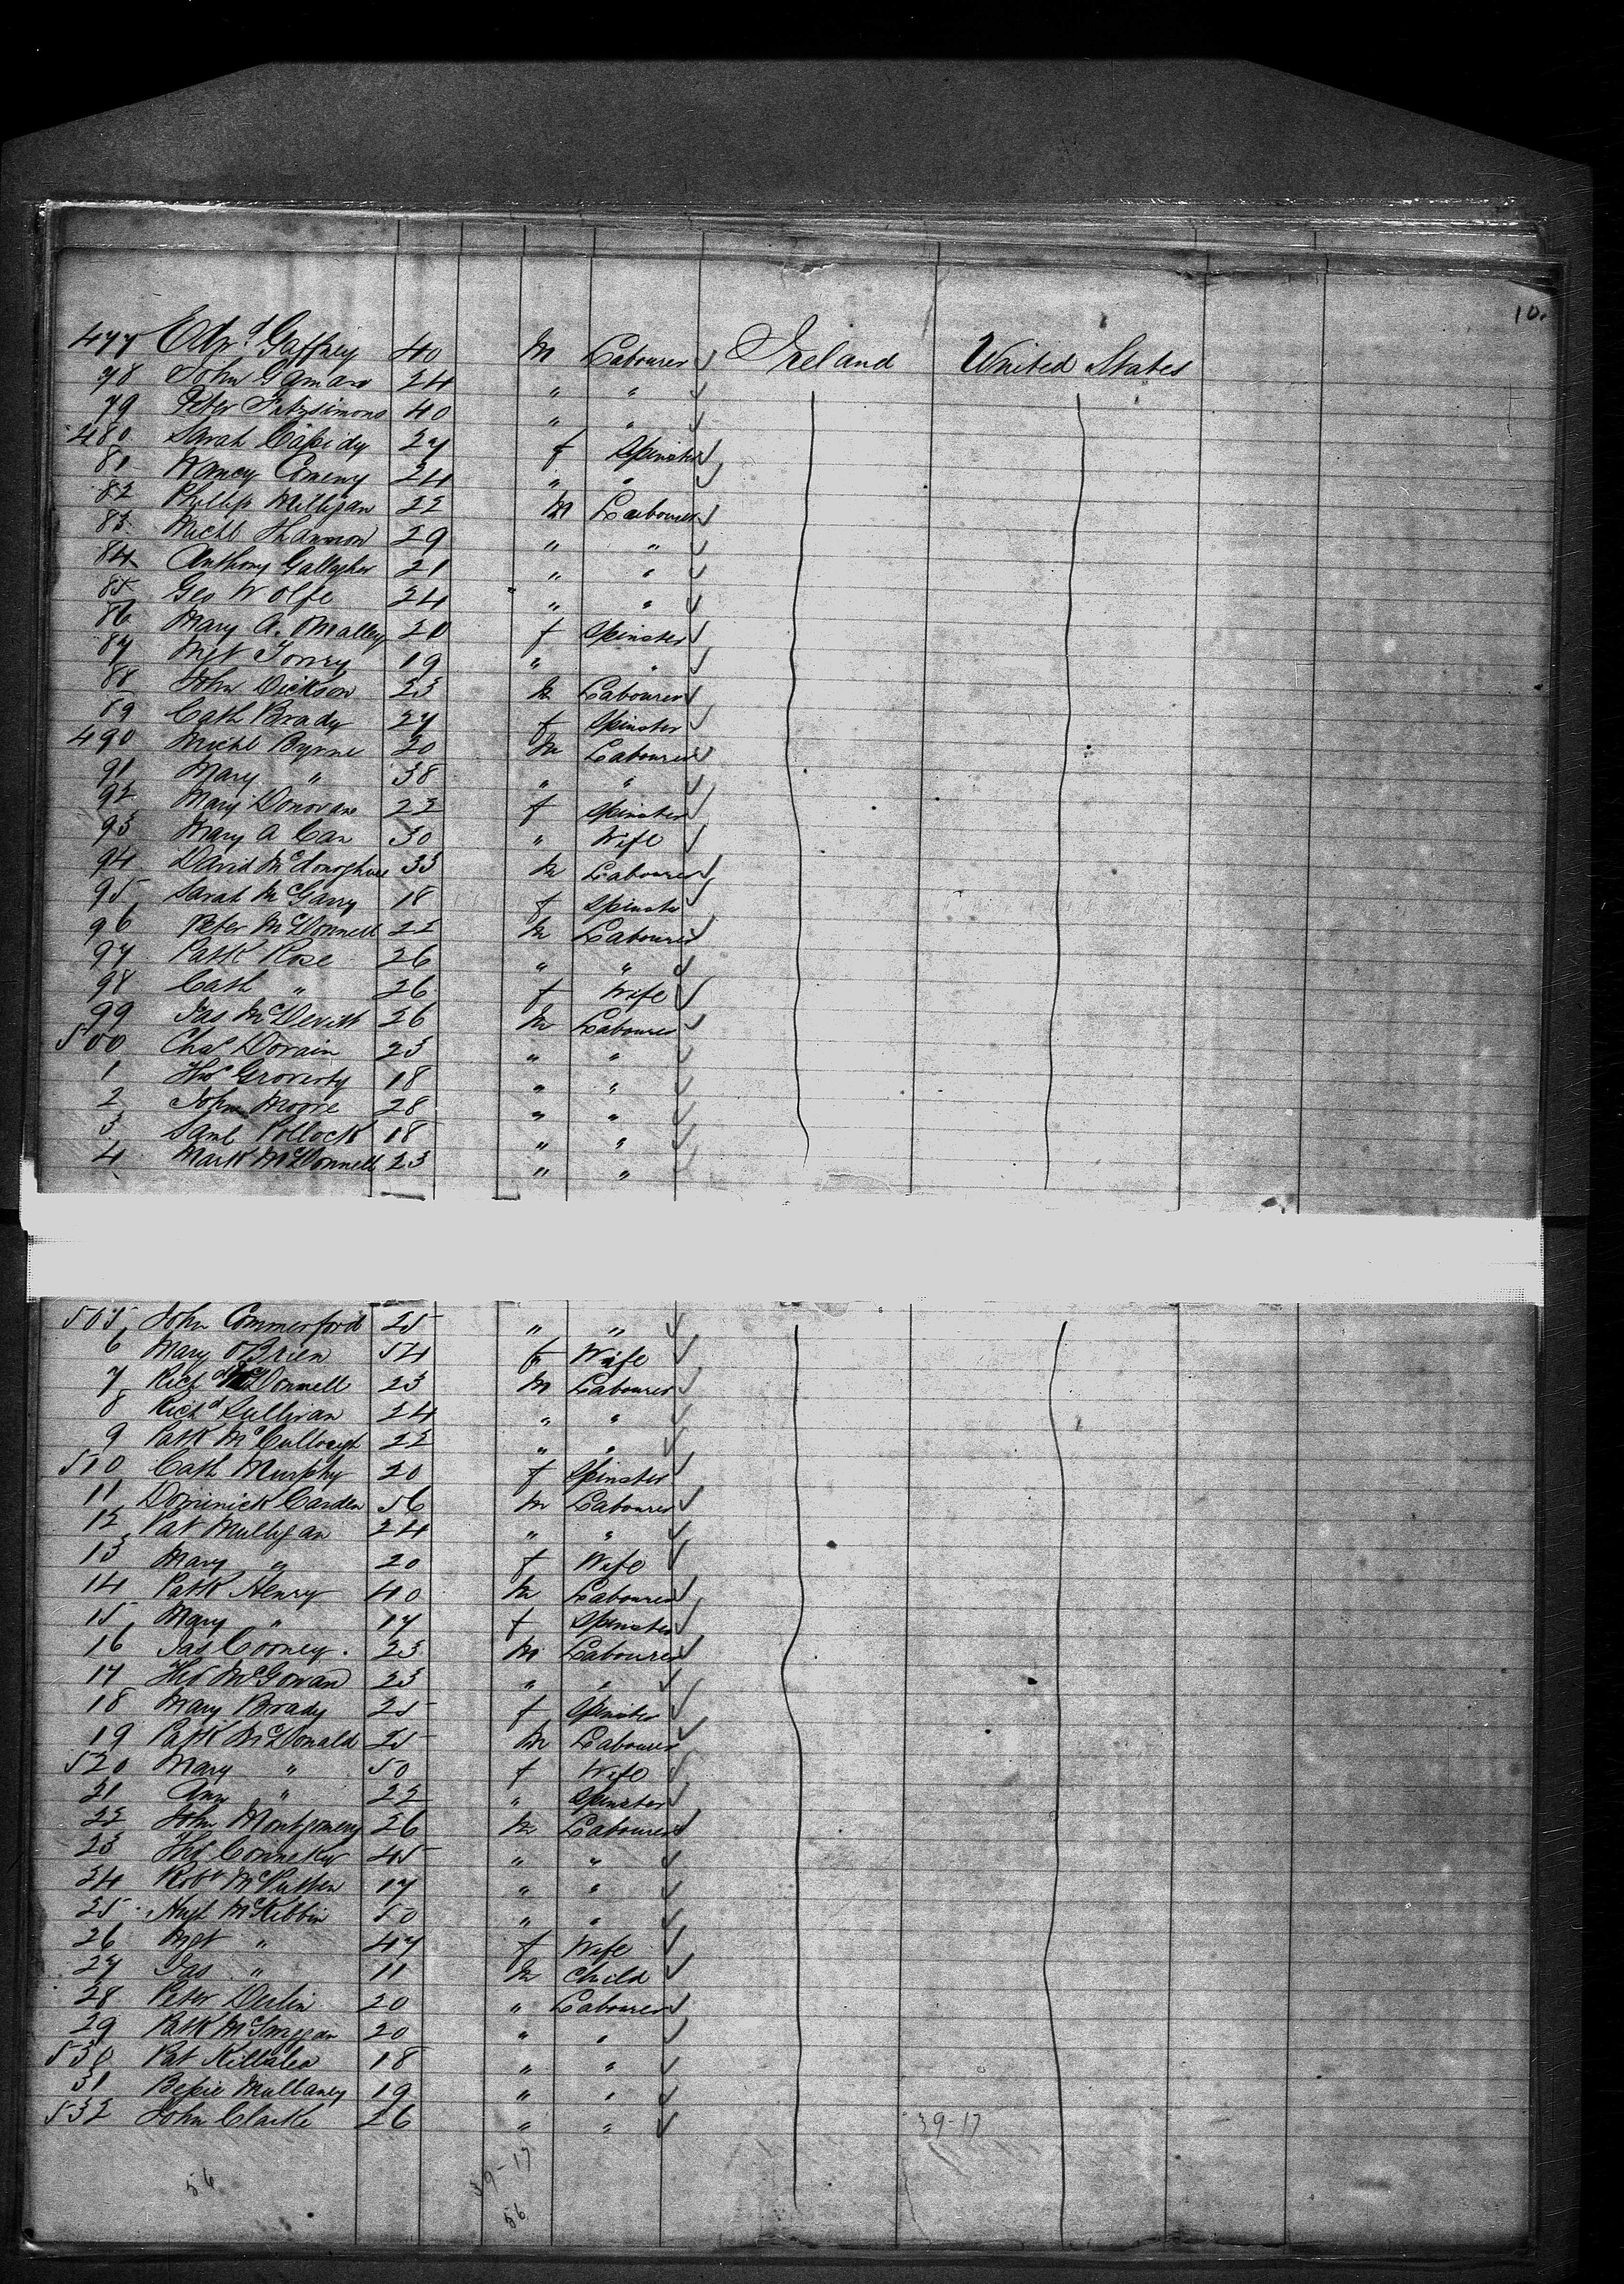 10.
477 Edwd Gaffney 40 M Labourer ✓ Ireland United States
78 John 24 " " ✓
79 Peter Fitzsimons 40 " " ✓
480 Sarah Cassidy 27 f Spinster ✓
81 Nancy 24 " " ✓
82 Phillip Milligan 22 M Labourer ✓
83 Michl Shannon 29 " " ✓
84 Anthony Gallagher 21 " " ✓
85 Geo Wolfe 24 " " ✓
86 Mary A. OMalley 20 f Spinster ✓
87 Mgt 19 " " ✓
88 John Dickson 23 M Labourer ✓
89 Cath Brady 27 f Spinster ✓
490 Michl Byrne 20 M Labourer ✓
91 Mary " 38 " " ✓
92 Mary Donovan 22 f Spinster ✓
93 Mary A Carr 30 " Wife ✓
94 David McDonoghue 33 M Labourer ✓
95 Sarah McGarry 18 f Spinster ✓
96 Peter McDonnell 22 M Labourer ✓
97 Patk Rose 26 " " ✓
98 Cath " 26 f Wife ✓
99 Jas McDevitt 26 M Labourer ✓
500 Chas Dorain 23 " " ✓
1 Thos 18 " " ✓
2 John Moore 28 " " ✓
3 Saml Pollock 18 " " ✓
4 Mark McDonnell 23 " " ✓
505 John Commerford 25 " " ✓
6 Mary OBrien 54 f Wife ✓
7 Richd McDonnell 23 M Labourer ✓
8 Richd Sullivan 24 " " ✓
9 Patk McCullough 22 " " ✓
510 Cath Murphy 20 f Spinster ✓
11 Dominick Carden 56 M Labourer ✓
12 Pat Mulligan 24 " " ✓
13 Mary " 20 f Wife ✓
14 Patk Henry 40 M Labourer ✓
15 Mary " 17 f Spinster ✓
16 Jas Cooney 23 M Labourer ✓
17 Thos McGowan 23 " " ✓
18 Mary Brady 25 f Spinster ✓
19 Patk McDonald 25 M Labourer ✓
520 Mary " 50 f Wife ✓
21 Ann " 22 " Spinster ✓
22 John Montgomery 26 M Labourer ✓
23 Thos 45 " " ✓
24 Robt 17 " " ✓
25 Hugh McKibbin 50 " " ✓
26 Mgt " 47 f Wife ✓
27 Jas " 11 M Child ✓
28 Peter Devlin 20 " Labourer ✓
29 Patk 20 " " ✓
530 Pat Killalea 18 " " ✓
31 Bessie Mullaney 19 " " ✓
532 John Clarke 26 " " ✓
39-17
56 39-17
56